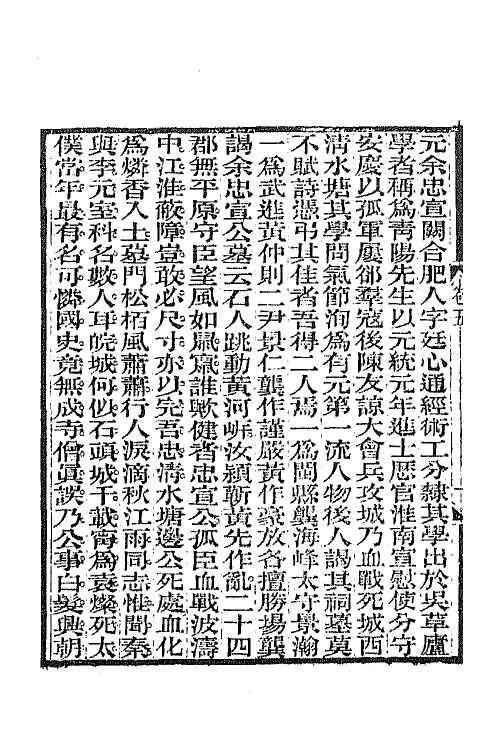 元余忠宣闕合肥人字廷心通經術工分隸其學出於吳草廬
學者稱爲青陽先生以元統元年進士歷官淮南宣慰使分守
安慶以孤軍屢郤羣寇後陳友諒大會兵攻城乃血戰死城西
清水塘其學問氣節洵爲有元第一流人物後人謁其祠墓莫
不賦詩憑弔其佳者吾得二人焉一爲閩縣龔海峰太守景瀚
一爲武進黃仲則二尹景仁龔作謹嚴黃作豪放各擅勝場龔
謁余忠宣公墓云石人跳動黃河㟁汝潁蘄黃先作亂二十四
郡無平原守臣望風如鳥竄誰歟健者忠宣公孤臣血戰波濤
中江淮蔽障豈敢必尺寸亦以完吾忠清水塘邊公死處血化
爲燐香入土墓門松栢風蕭蕭行人淚滴秋江雨同志惟聞秦
與李元室科名數人耳皖城何似石頭城千載甯爲袁粲死太
僕當年最有名可憐國史竟無成寺僧眞誤乃公事白髮興朝
卷五